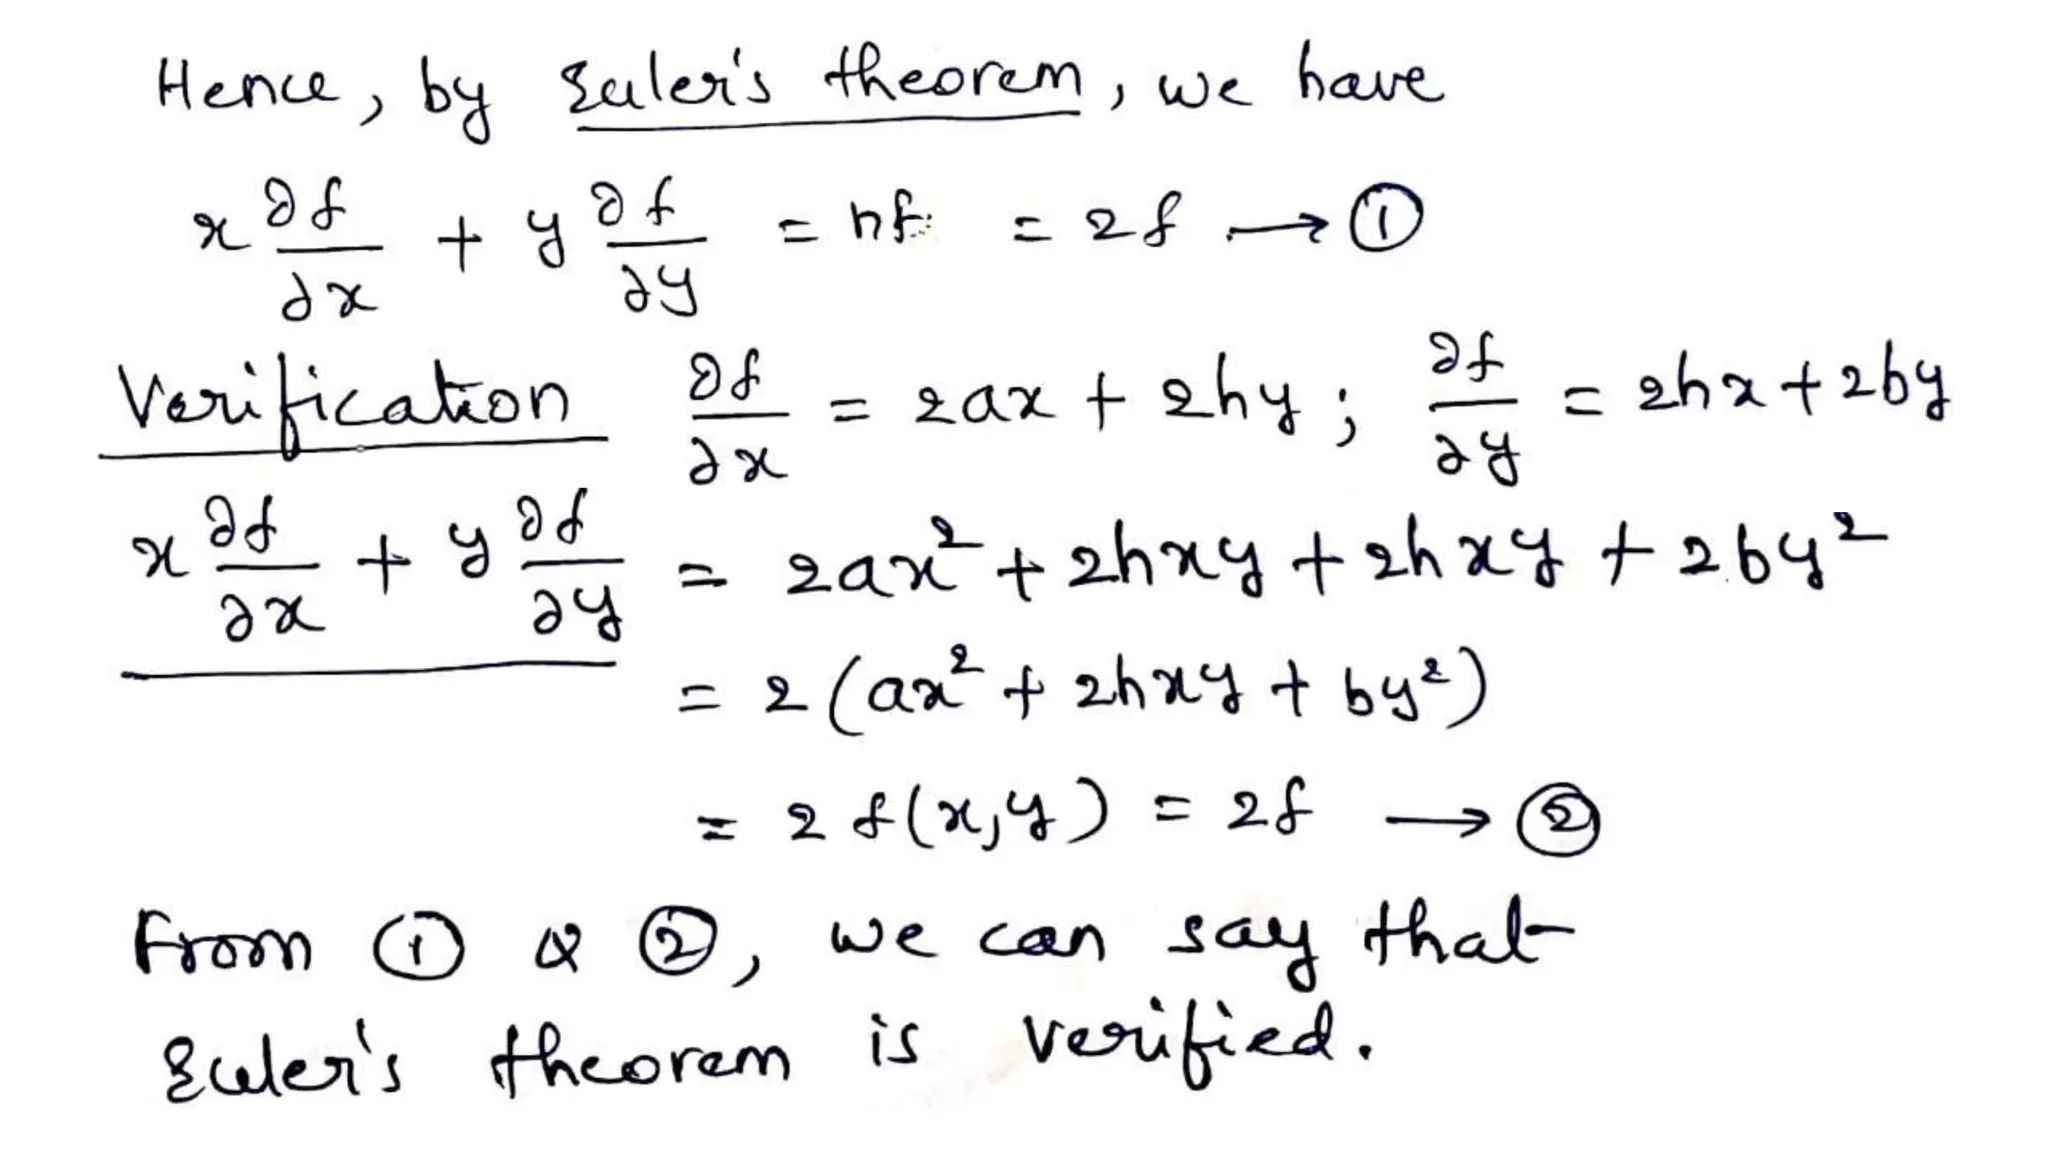 Hence, by Euler's theorem, we have
x ∂f/∂x + y ∂f/∂y = nf = 2f → ①
Verification ∂f/∂x = 2ax + 2hy ; ∂f/∂y = 2hx + 2by
x ∂f/∂x + y ∂f/∂y = 2ax² + 2hxy + 2hxy + 2by²
= 2 (ax² + 2hxy + by²)
= 2 f(x,y) = 2f → ②
From ① & ②, we can say that
Euler's theorem is verified.